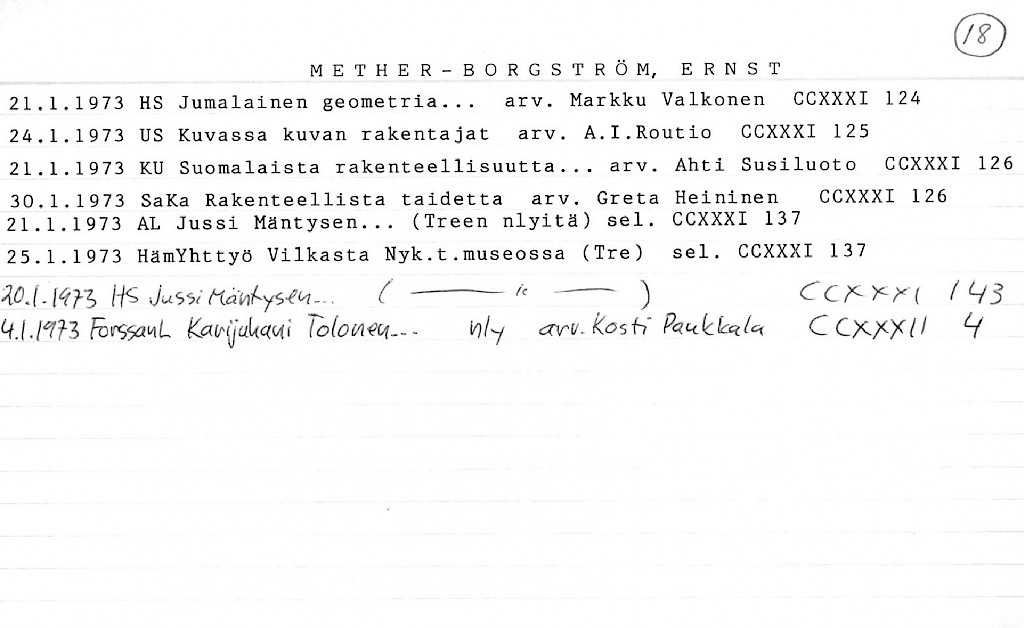 18
METHER-BORGSTRÖM, ERNST
21.1.1973 HS Jumalainen geometria... arv. Markku Valkonen CCXXXI 124
24.1.1973 US Kuvassa kuvan rakentajat arv. A.I.Routio CCXXXI 125
21.1.1973 KU Suomalaista rakenteellisuutta... arv. Ahti Susiluoto CCXXXI 126
30.1.1973 SaKa Rakenteellista taidetta arv. Greta Heininen CCXXXI 126
21.1.1973 AL Jussi Mäntysen... (Treen nlyitä) sel. CCXXXI 137
25.1.1973 HämYhttyö Vilkasta Nyk.t.museossa (Tre) sel. CCXXXI 137
20.1.1973 HS Jussi Mäntysen... ( —— " —— ) CCXXXI 143
4.1.1973 ForssanL Karijuhani Tolonen... nly arv. Kosti Paukkala CCXXXII 4